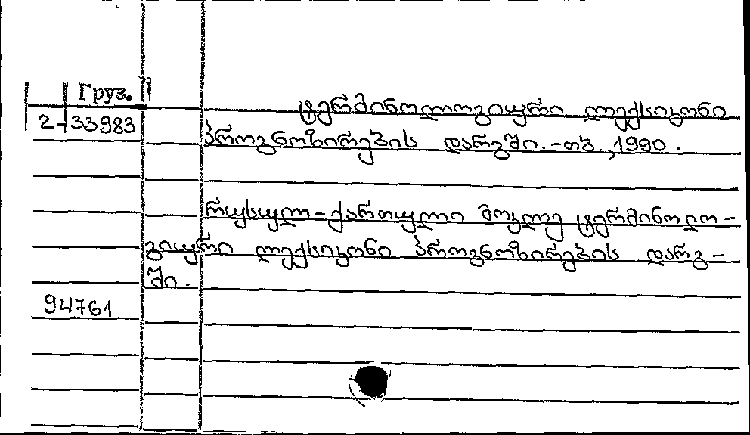 Груз.
2-33983
ტერმინოლოგიური ლექსიკონი
პროგნოზირების დარგში.-თბ.,1990.
რუსულ-ქართული მოკლე ტერმინოლო-
გიური ლექსიკონი პროგნოზირების დარგ-
ში.
94761